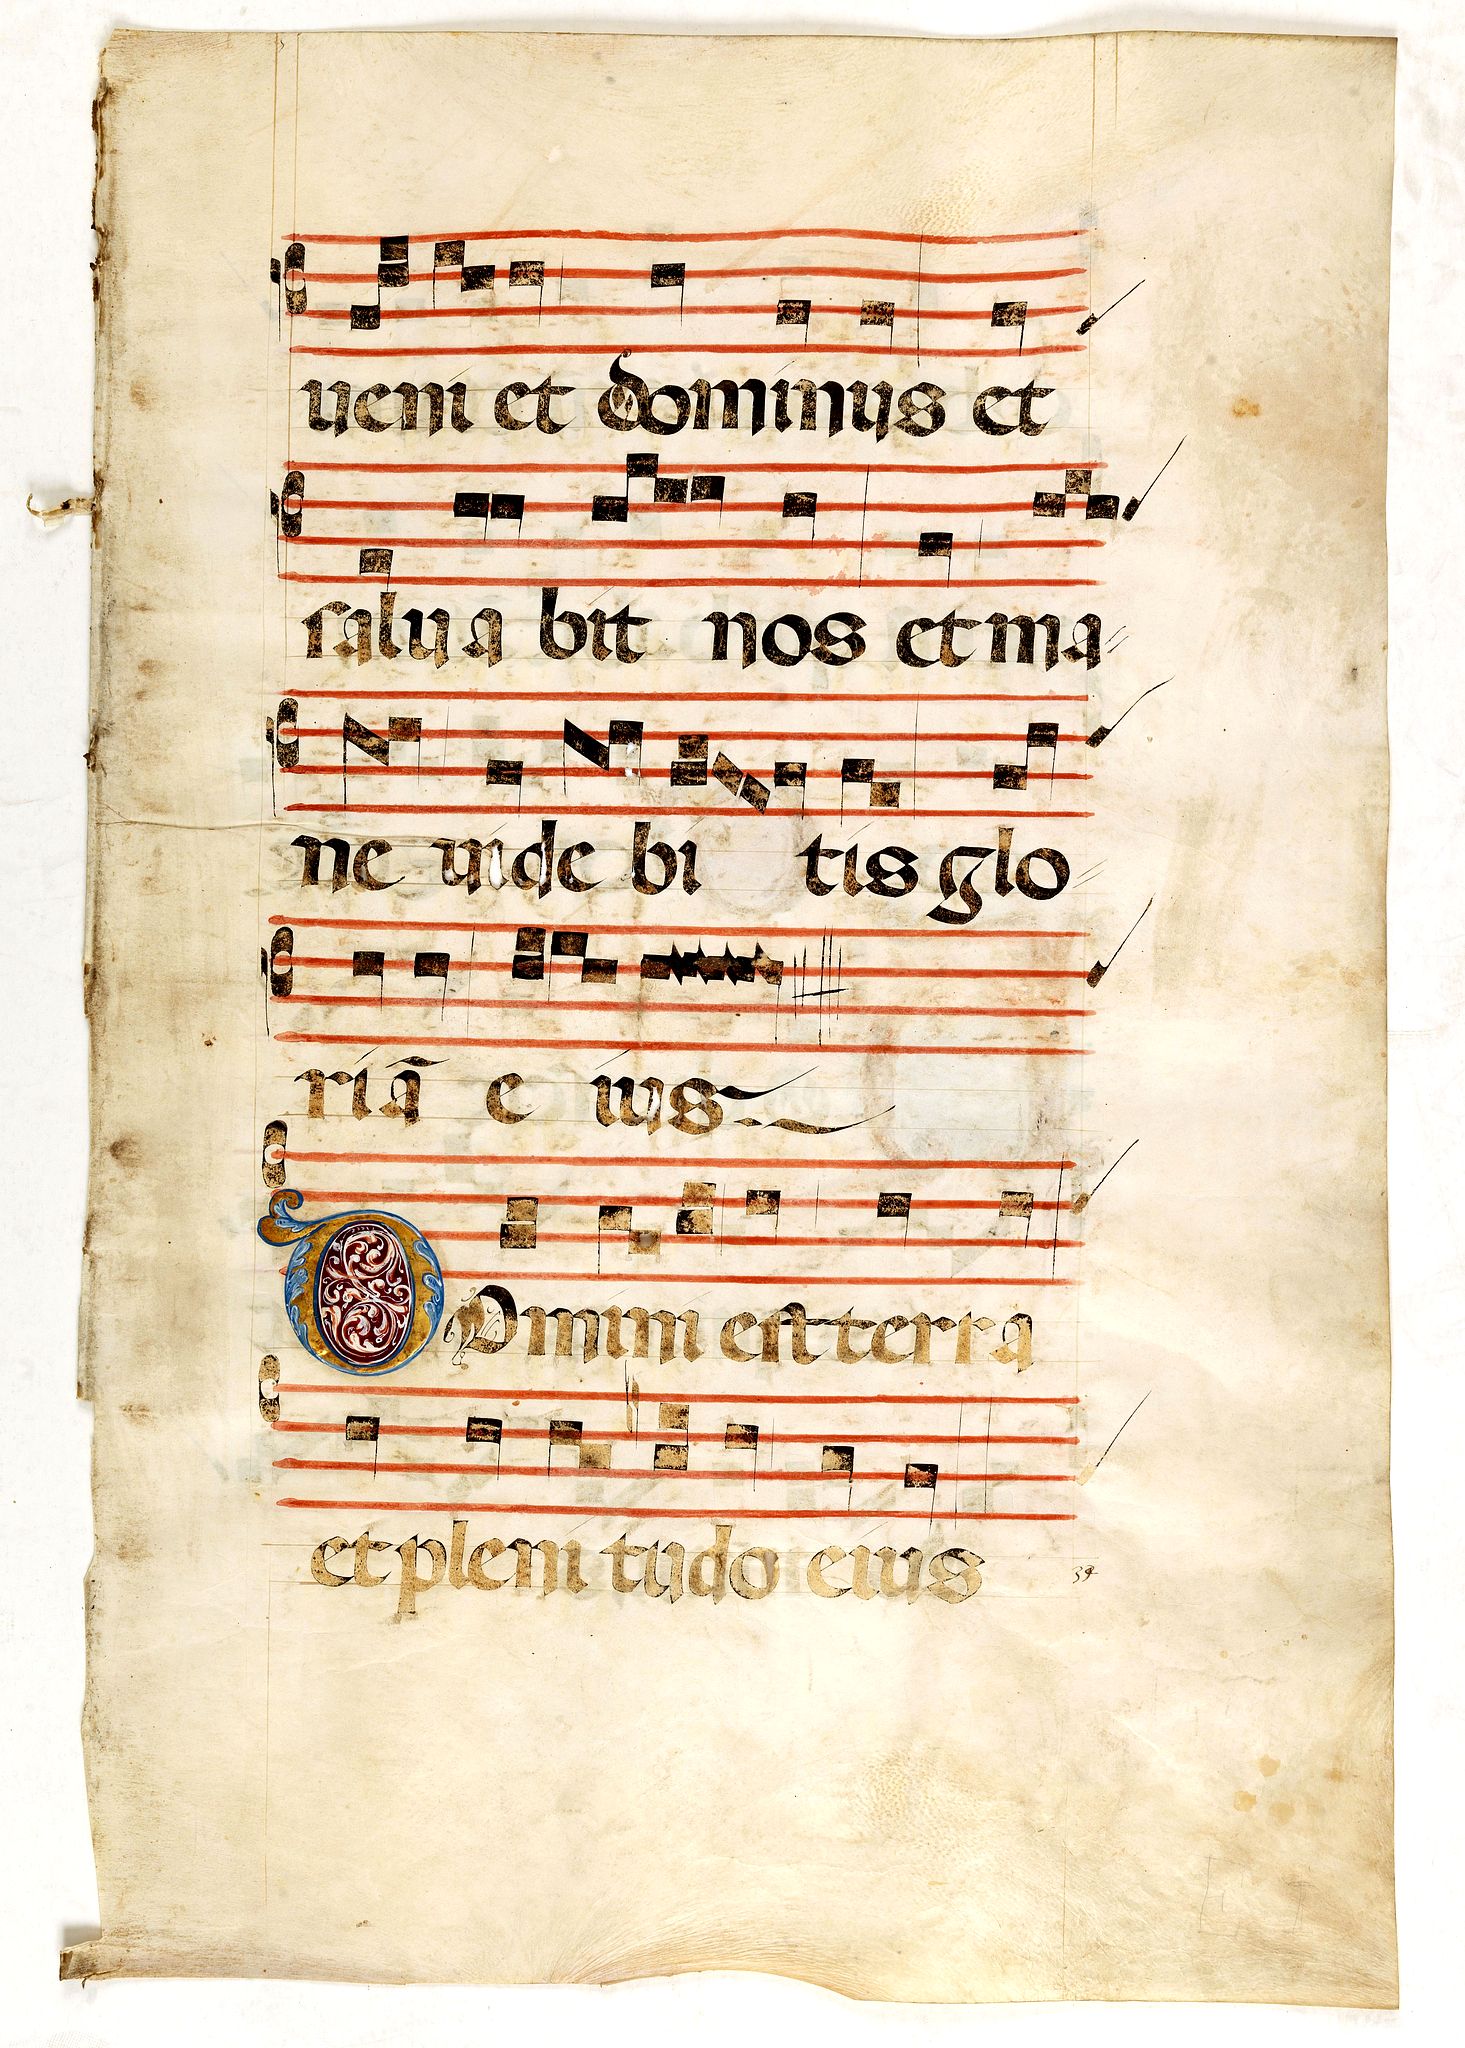 ueni et dominus et
salua bit nos et ma
ne uide bi tis glo
riā e ius
DOmini est terra
et pleni tudo eius
39